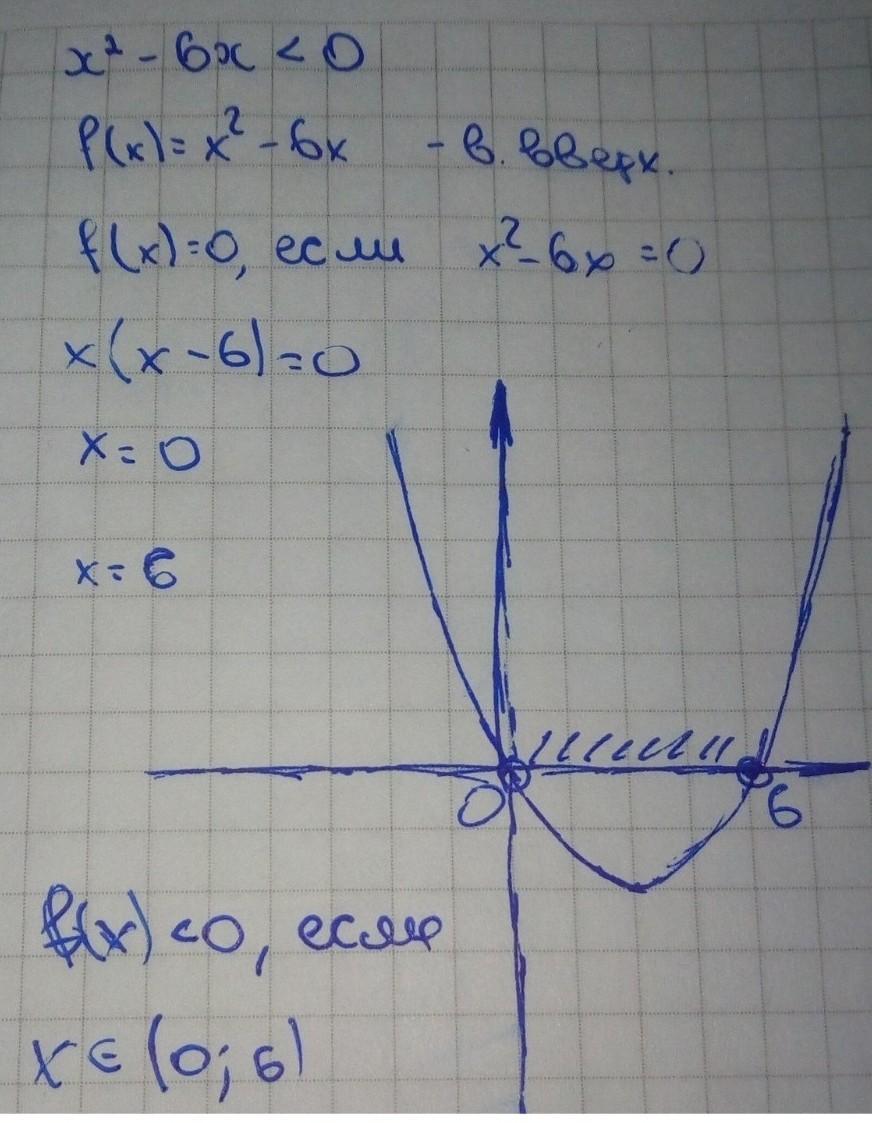 x² - 6x < 0
f(x) = x² - 6x - в. вверх.
f(x) = 0, если x² - 6x = 0
x(x - 6) = 0
x = 0
x = 6
0 6
f(x) < 0, если
x ∈ (0; 6)